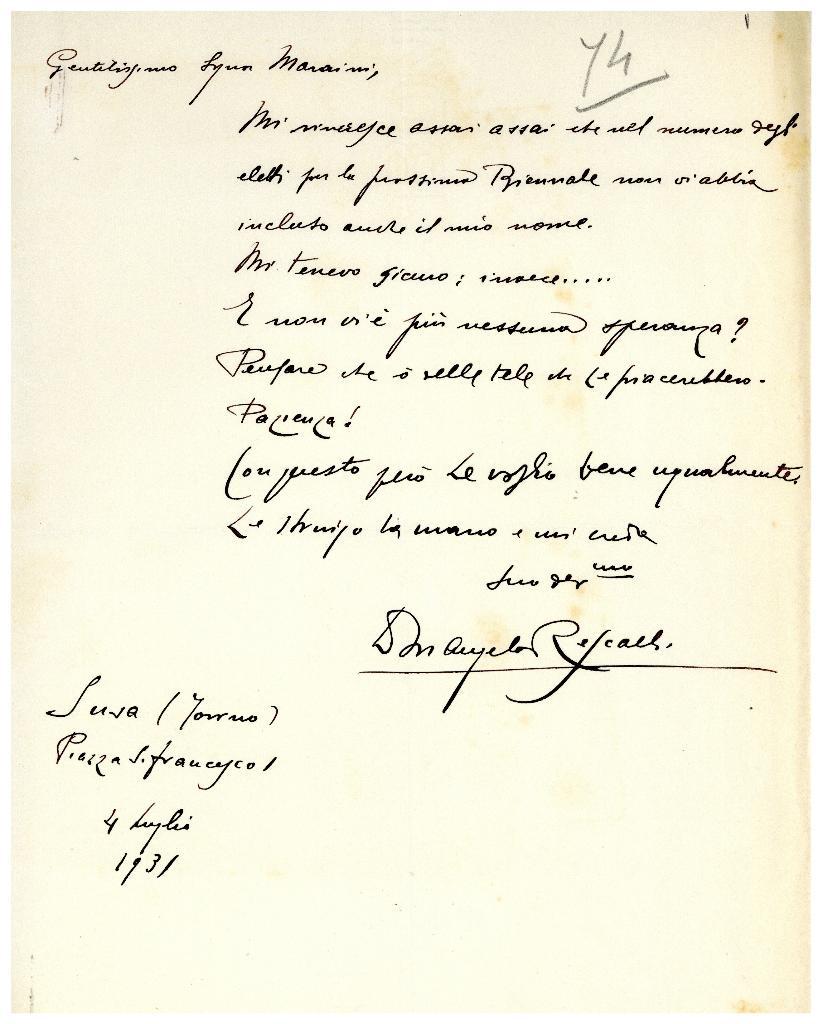 74
Gentilissimo Signor Maraini,
Mi rincresce assai assai che nel numero degli
eletti per la prossima Biennale non vi abbia
incluso anche il mio nome.
Mi tenevo sicuro; invece.....
E non vi è più nessuna speranza?
Pensare che ò delle tele che Le piacerebbero.
Pazienza!
Con questo però Le voglio bene ugualmente.
Le stringo la mano e mi creda
Suo dev mo
Don Angelo Rescalli.
Susa (Torino)
Piazza S. Francesco 1
4 Luglio
1931